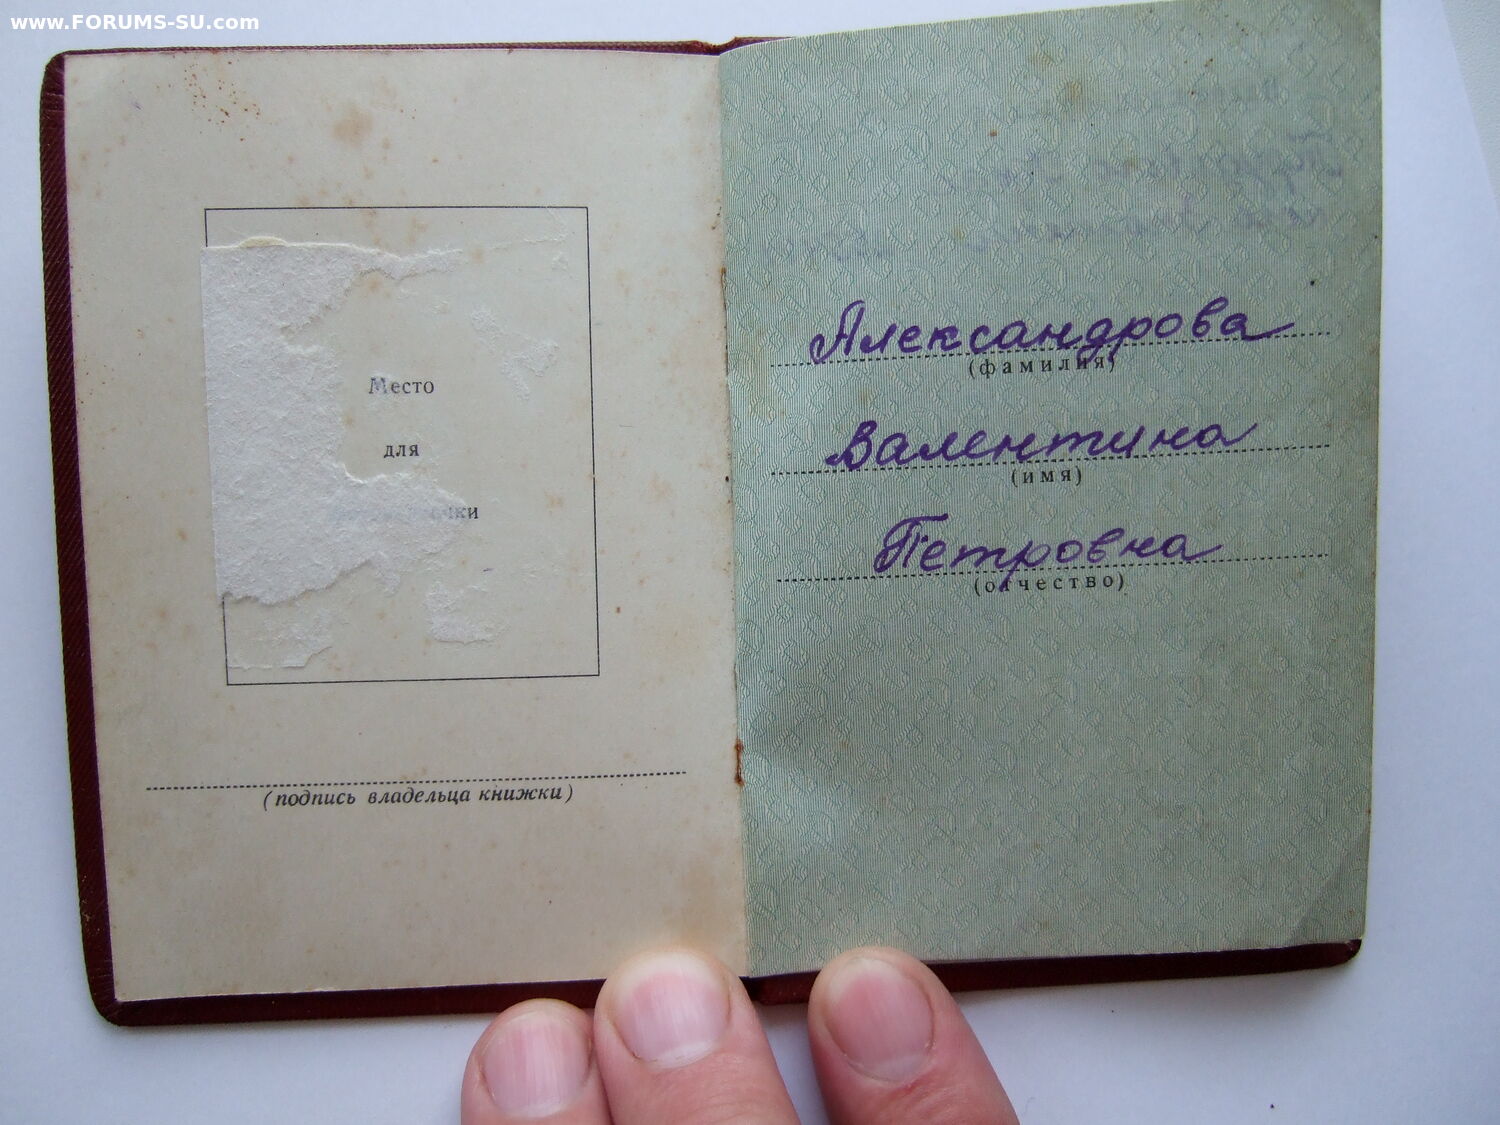 www.FORUMS-SU.com
Место
для
(подпись владельца книжки)
Александрова
(фамилия)
Валентина
(имя)
Петровна
(отчество)